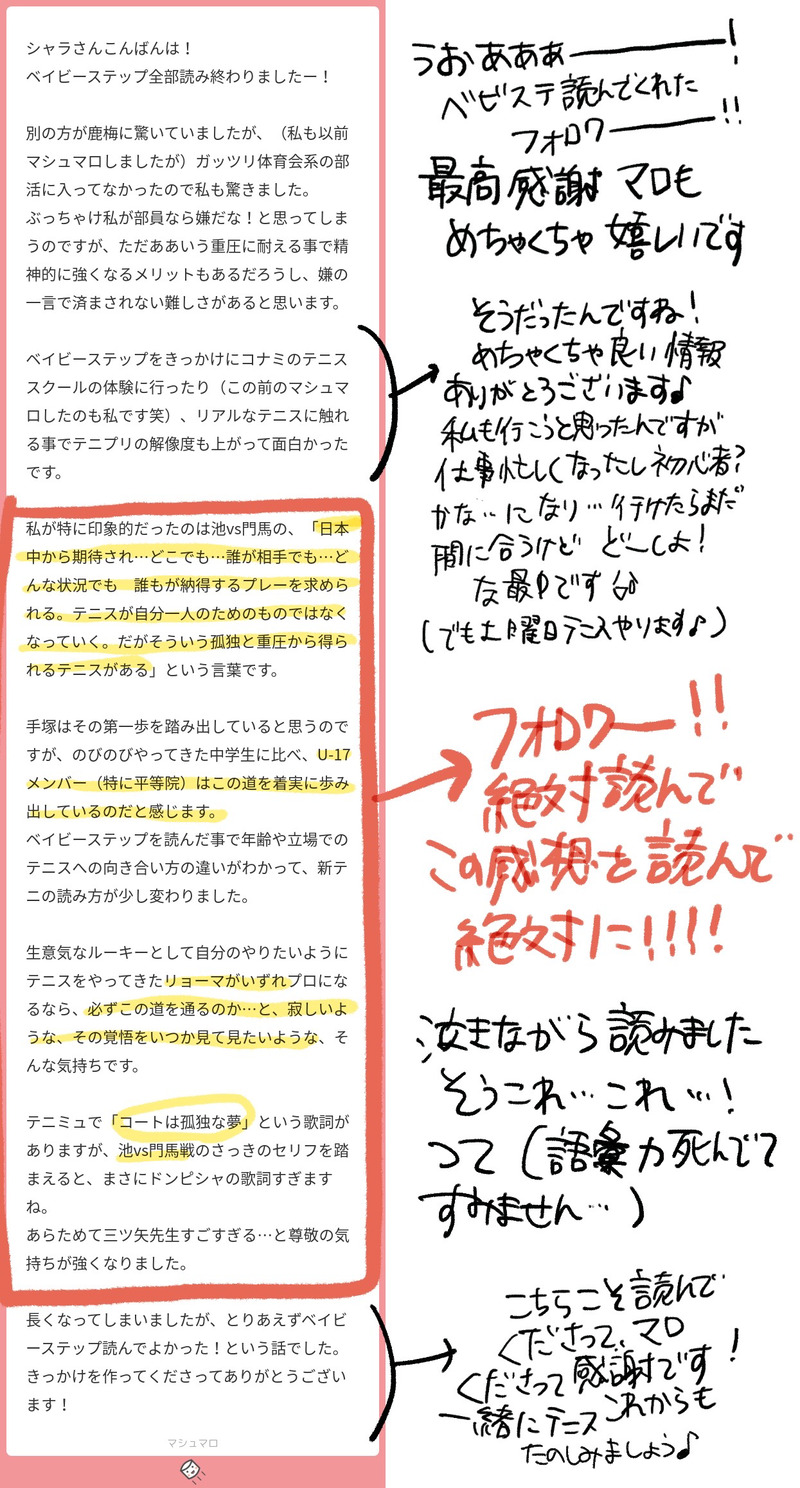 シャラさんこんばんは！
ベイビーステップ全部読み終わりましたー！
別の方が鹿梅に驚いていましたが、（私も以前
マシュマロしましたが）ガッツリ体育会系の部
活に入ってなかったので私も驚きました。
ぶっちゃけ私が部員なら嫌だな！と思ってしま
うのですが、ただああいう重圧に耐える事で精
神的に強くなるメリットもあるだろうし、嫌の
一言で済まされない難しさがあると思います。
ベイビーステップをきっかけにコナミのテニス
スクールの体験に行ったり（この前のマシュマ
ロしたのも私です笑）、リアルなテニスに触れ
る事でテニプリの解像度も上がって面白かった
です。
私が特に印象的だったのは池vs門馬の、「日本
中から期待され…どこでも…誰が相手でも…ど
んな状況でも　誰もが納得するプレーを求めら
れる。テニスが自分一人のためのものではなく
なっていく。だがそういう孤独と重圧から得ら
れるテニスがある」という言葉です。
手塚はその第一歩を踏み出していると思うので
すが、のびのびやってきた中学生に比べ、U-17
メンバー（特に平等院）はこの道を着実に歩み
出しているのだと感じます。
ベイビーステップを読んだ事で年齢や立場での
テニスへの向き合い方の違いがわかって、新テ
ニの読み方が少し変わりました。
生意気なルーキーとして自分のやりたいように
テニスをやってきたリョーマがいずれプロにな
るなら、必ずこの道を通るのか…と、寂しいよ
うな、その覚悟をいつか見て見たいような、そ
んな気持ちです。
テニミュで「コートは孤独な夢」という歌詞が
ありますが、池vs門馬戦のさっきのセリフを踏
まえると、まさにドンピシャの歌詞すぎます
ね。
あらためて三ツ矢先生すごすぎる…と尊敬の気
持ちが強くなりました。
長くなってしまいましたが、とりあえずベイビ
ーステップ読んでよかった！という話でした。
きっかけを作ってくださってありがとうござい
ます！
マシュマロ
うおあああー！
ベビステ読んでくれた
フォロワー!!
最高感謝 マロも
めちゃくちゃ嬉しいです
そうだったんですね！
めちゃくちゃ良い情報
ありがとうございます♪
私も行こうと思ったんですが
仕事忙しくなったし初心者?
かな…になり…行けたらまだ
間に合うけど どーしよ！
な最中です
(でも土曜日テニスやります♪)
フォロワー!!
絶対読んで
この感想を読んで
絶対に!!!!
泣きながら読みました
そうこれ…これ…！
って(語彙力死んでて
すみません…)
こちらこそ読んで
くださって、マロ
くださって感謝です！
これからも
一緒にテニス
たのしみましょう♪